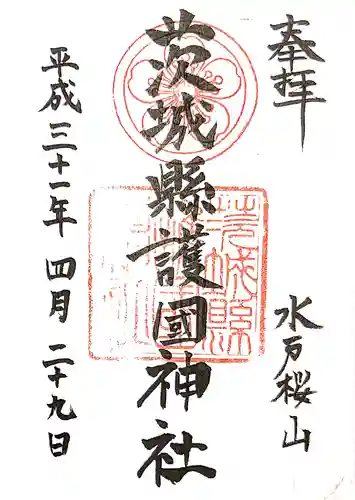 奉拝
水戸桜山
茨城縣護國神社
平成三十一年四月二十九日